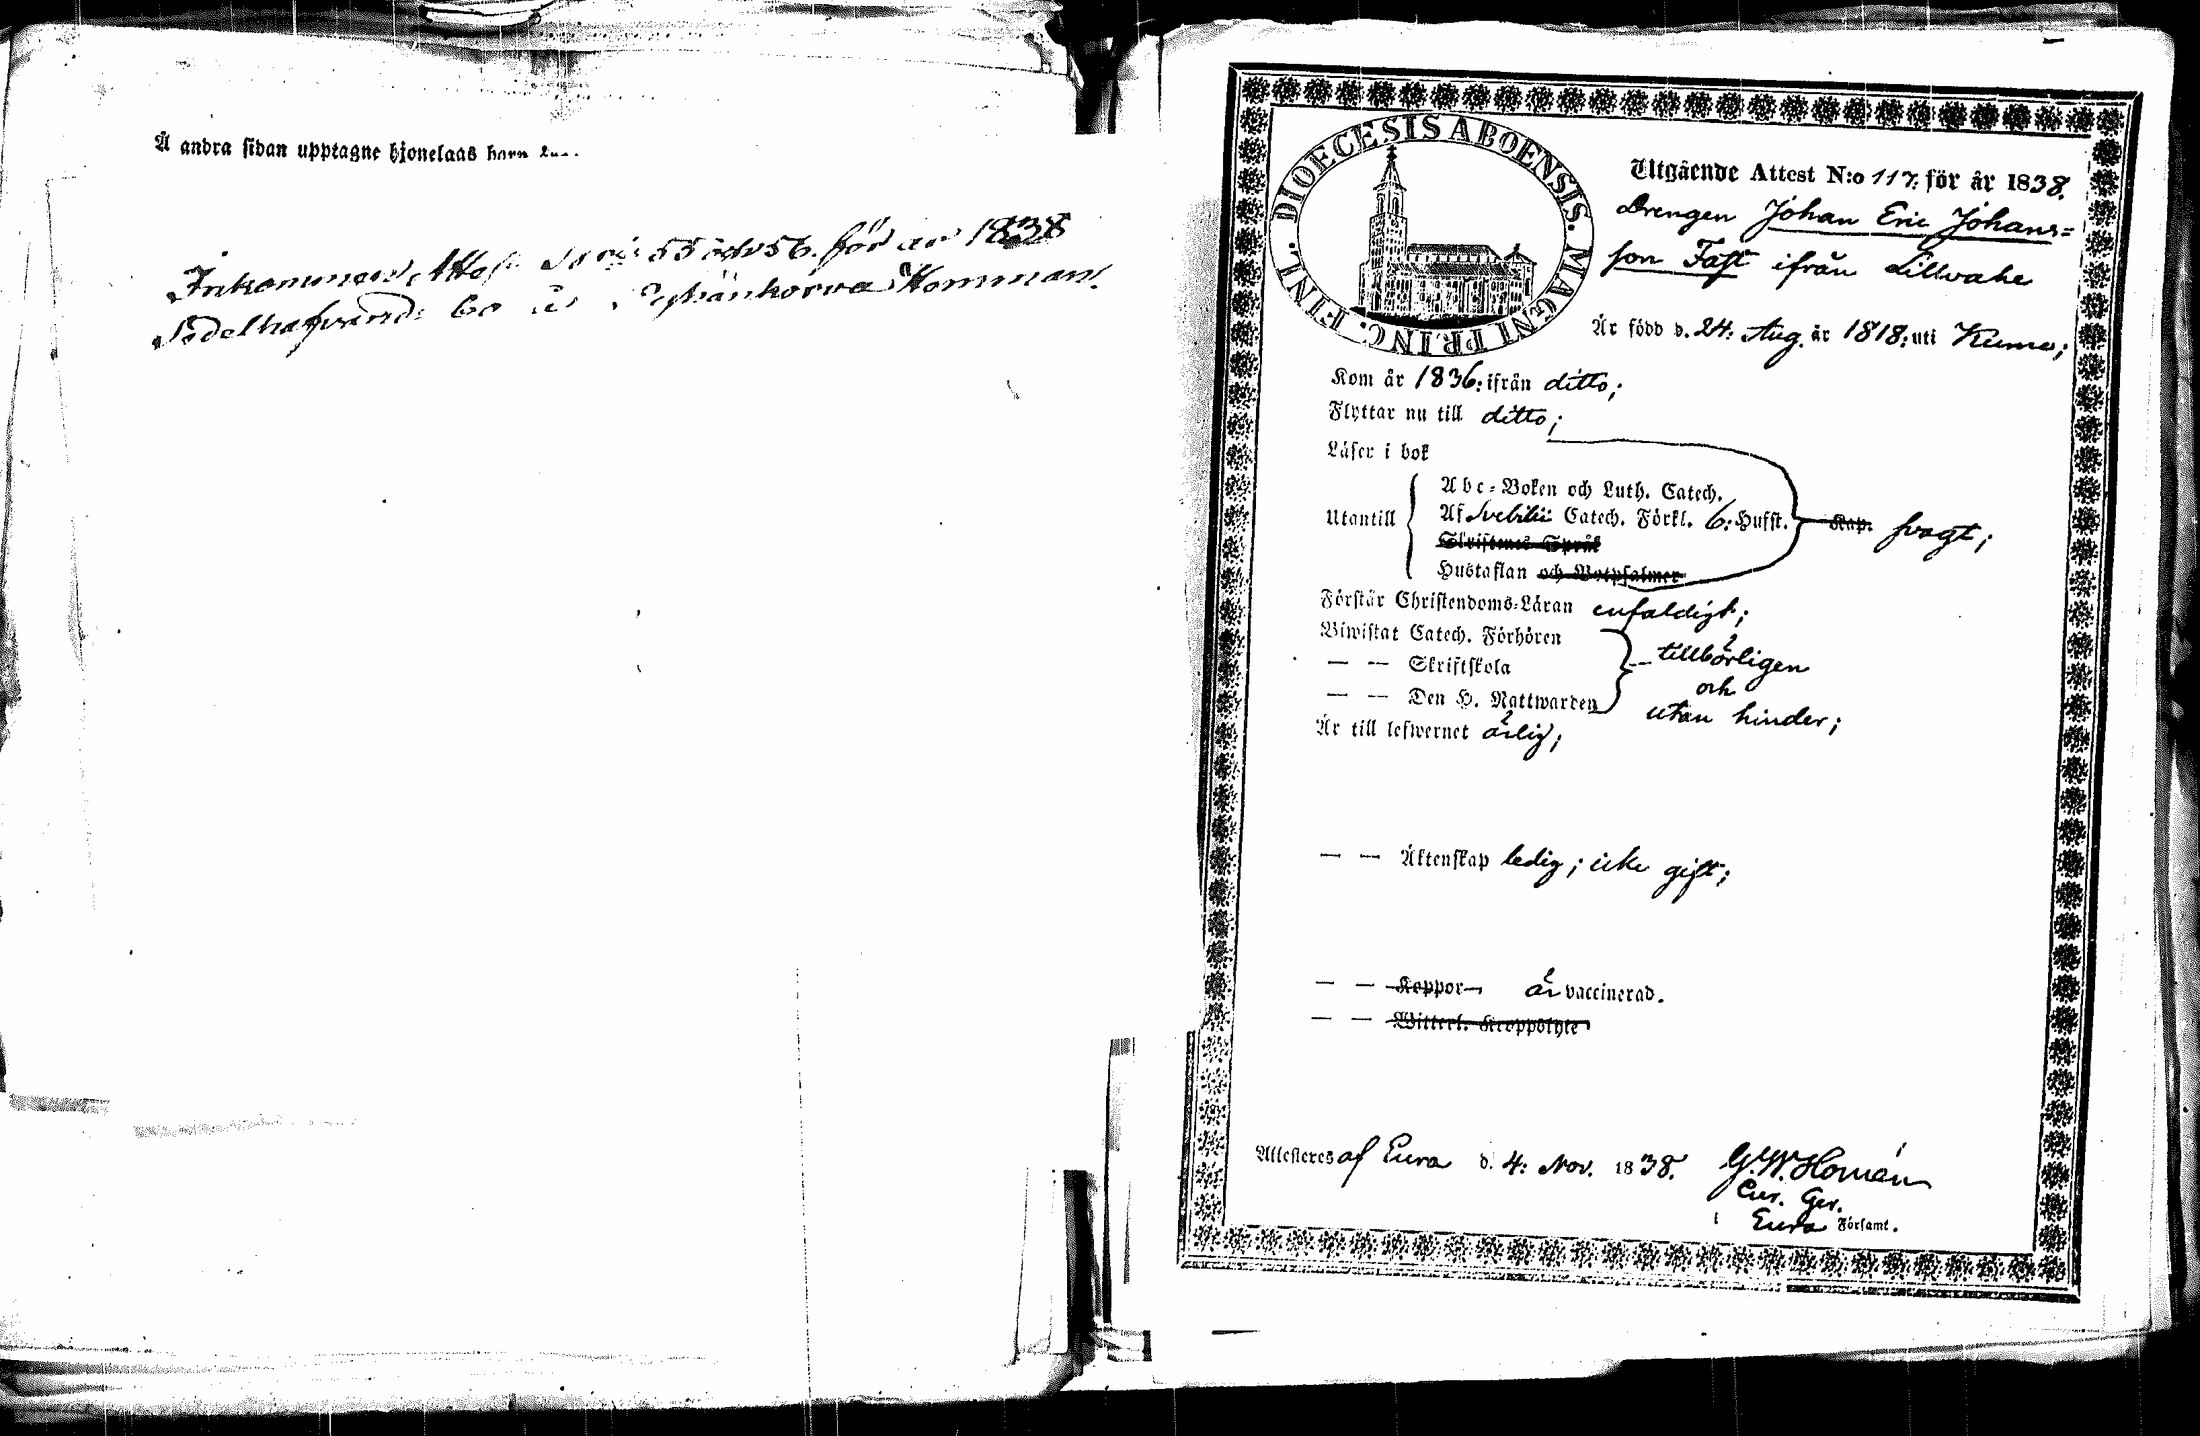 Å andra sidan upptagne hjonelaas barn
Inkommen Attest N:o 55 och 56 för år 1838
bo å
DIOECESIS ABOENSIS. MAGNI PRINC. FINL.
Utgående Attest N:o 117: för år 1838.
Drengen Johan Eric Johans=
son Fast ifrån Lillvahe
Är född d. 24: Aug. år 1818: uti Kumo;
Kom år 1836: ifrån ditto;
Flyttar nu till ditto;
Läser i bok
Abc-Boken och Luth. Catech.
Utantill Af Svebilii Catech. Förkl. 6: Hufst. Kap. svagt;
Skriftenes Språk
Hustaflan och Botpsalmer
Förstår Christendoms-Läran enfaldigt;
Biwistat Catech. Förhören
— — Skriftskola tillbörligen
och
— — Den H. Nattwarden utan hinder;
Är till lefwernet ärlig;
— — Äktenskap ledig; icke gift;
— — Koppor är vaccinerad.
— — Witterl. Kroppslyte
Attesteras af Eura d. 4: Nov. 1838. G. W. Homén
Cur. Ger.
i Eura Församl.